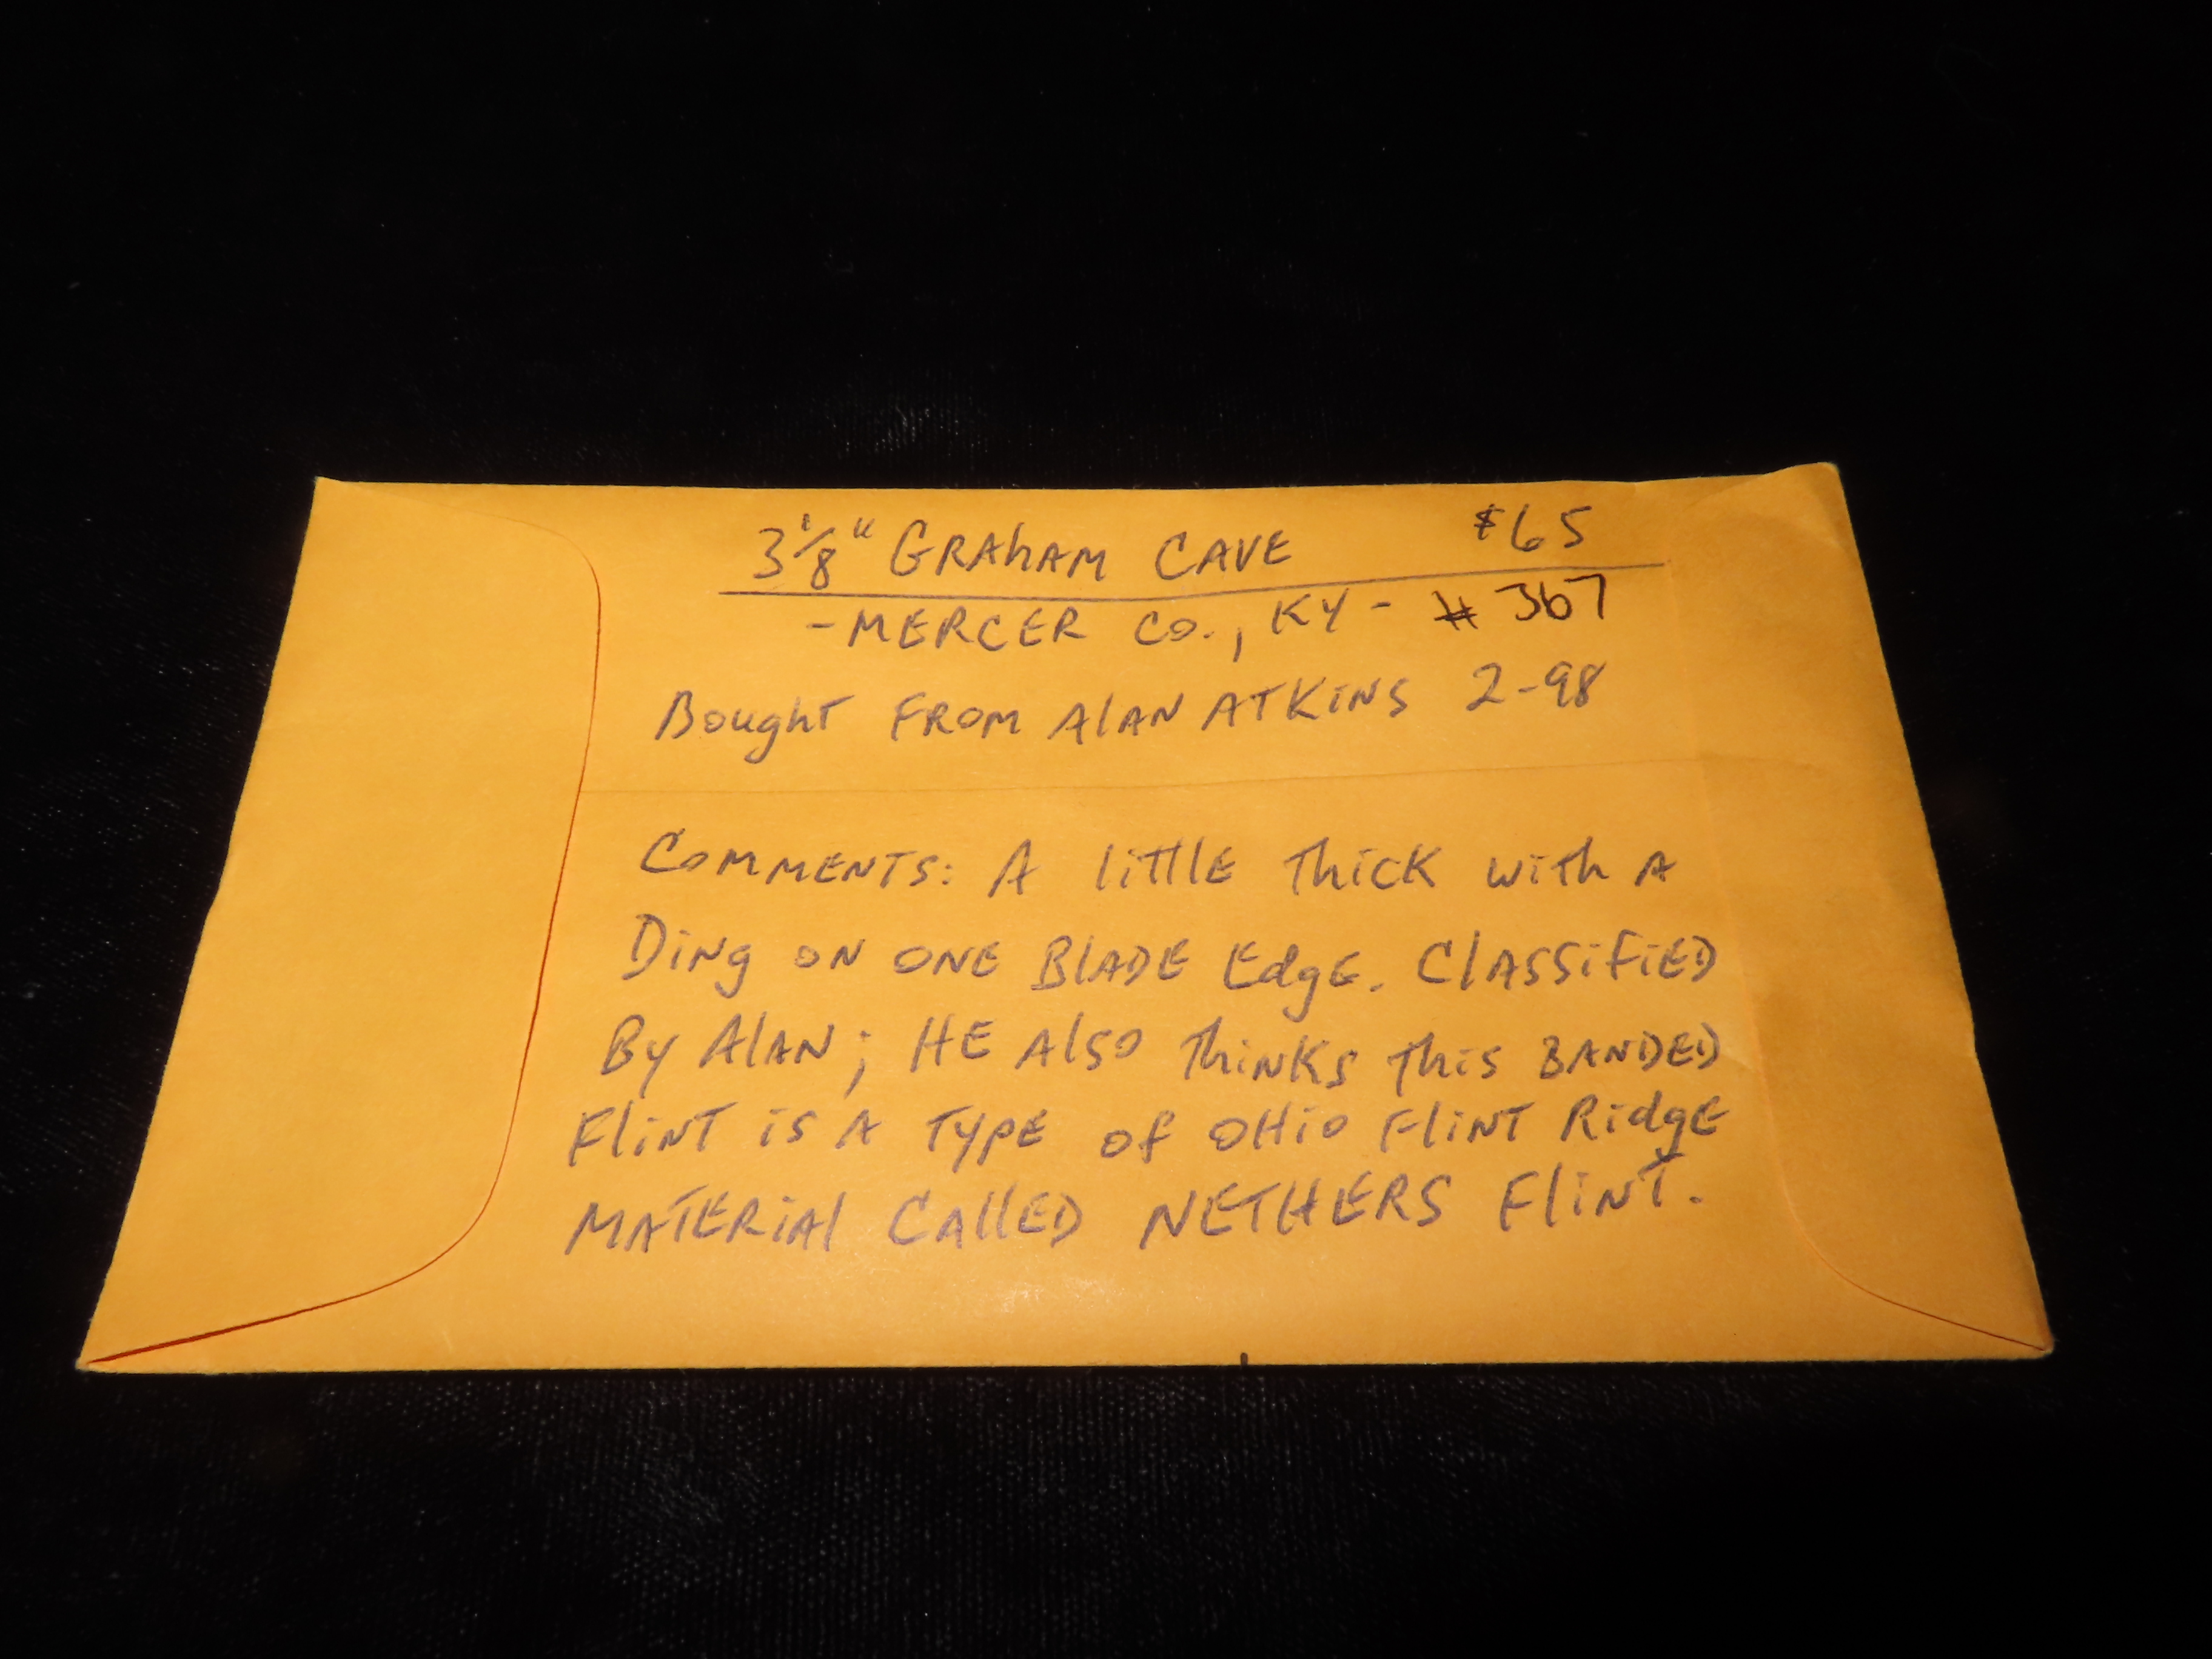 3 1/8" GRAHAM CAVE $65
-MERCER CO., KY- #367
Bought FROM ALAN ATKINS 2-98
COMMENTS: A little thick with A
Ding ON ONE BLADE EdgE. CLASSIFIED
By ALAN; HE Also thinks this BANDED
Flint is A TypE of OHio Flint RidgE
MATERIAL CAllED NETHERS Flint.